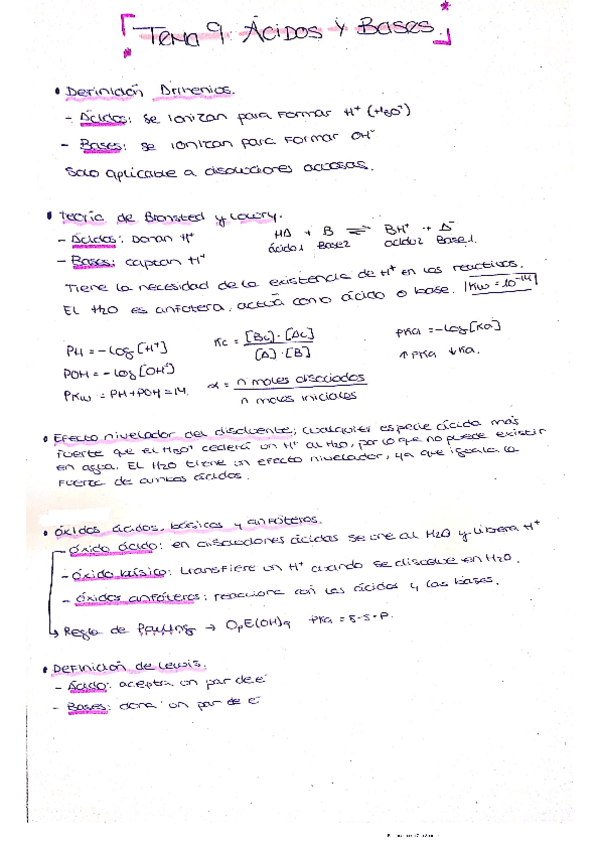 Tema 9: Ácidos y Bases.
• Definición Arrhenios.
- Ácidos: se ionizan para formar H⁺ (H₃O⁺)
- Bases: se ionizan para formar OH⁻
Solo aplicable a disoluciones acuosas.
• Teoría de Bronsted y Lowry.
- Ácidos: Donan H⁺
HA + B ⇌ BH⁺ + A⁻
ácido1 Base2 ácido2 Base1.
- Bases: captan H⁺
Tiene la necesidad de la existencia de H⁺ en los reactivos.
El H₂O es anfótera, actúa como ácido o base. |Kw = 10⁻¹⁴|
PH = -log[H⁺]
Kc = [Bc]·[Ac] / [A]·[B]
PKa = -log[Ka]
POH = -log[OH⁻]
↑PKa ↓Ka.
PKw = PH + POH = 14.
α = n moles disociados / n moles iniciales
• Efecto nivelador del disolvente; cualquier especie ácida más
fuerte que el H₃O⁺ cederá un H⁺ al H₂O, por lo que no puede existir
en agua. El H₂O tiene un efecto nivelador, ya que iguala la
fuerza de ambos ácidos.
• óxidos ácidos, básicos y anfóteros.
- óxido ácido: en disoluciones ácidas se une al H₂O y libera H⁺
- óxido básico: transfiere un H⁺ cuando se disuelve en H₂O.
- óxidos anfóteros: reacciona con los ácidos y las bases.
↳ Regla de Pauling → OₚE(OH)q PKa = 8-5·P.
• Definición de Lewis.
- Ácido: acepta un par de e⁻
- Bases: dona un par de e⁻